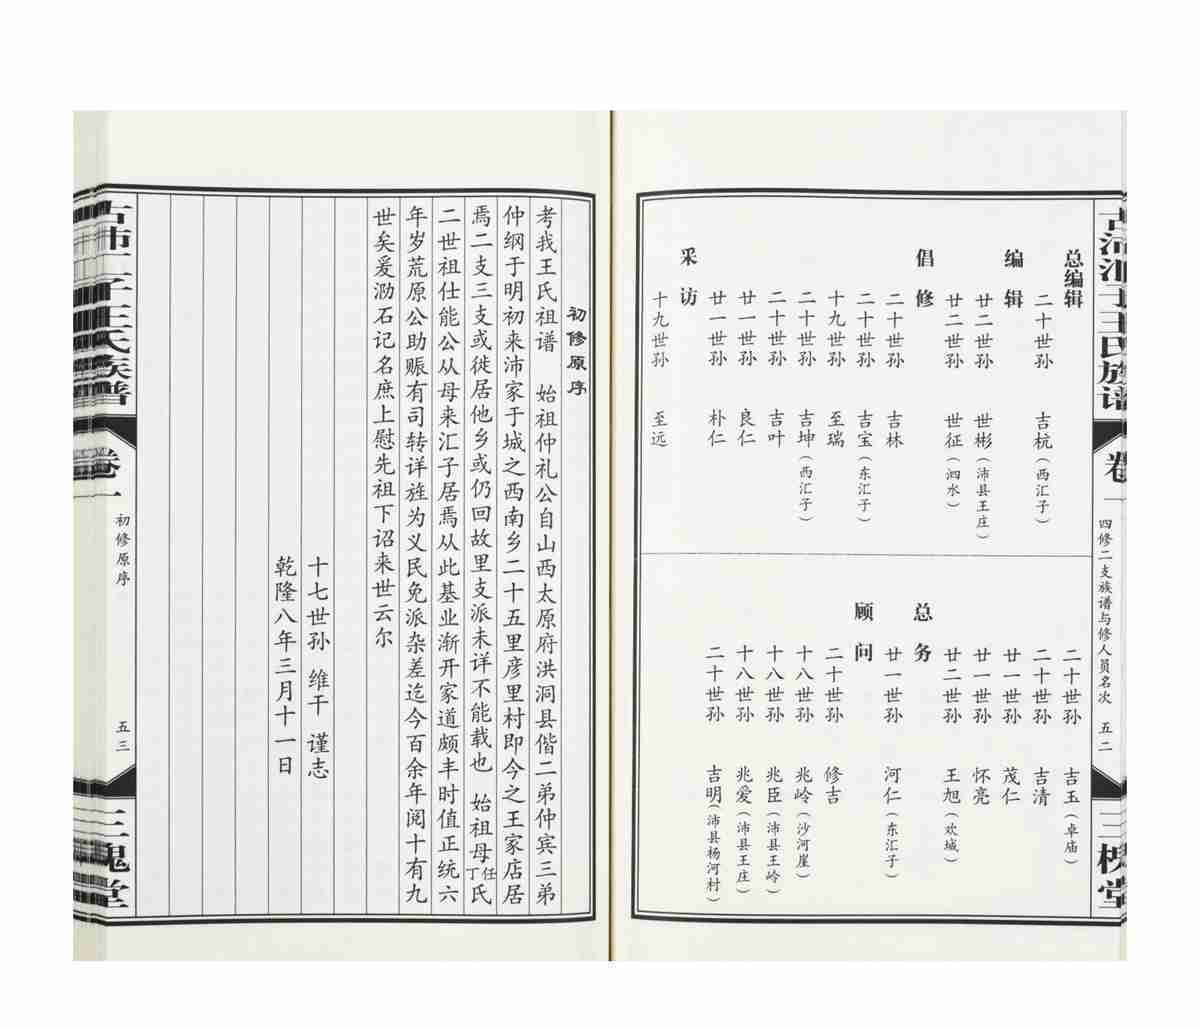 古沛汇子王氏族谱
卷一
四修二支族谱与修人员名次 五二
三槐堂
总编辑
二十世孙 吉杭(西汇子)
编辑
廿二世孙 世彬(沛县王庄)
廿二世孙 世征(泗水)
倡修
二十世孙 吉林
二十世孙 吉宝(东汇子)
十九世孙 至瑞
二十世孙 吉坤(西汇子)
二十世孙 吉叶
廿一世孙 良仁
廿一世孙 朴仁
采访
十九世孙 至远
二十世孙 吉玉(卓庙)
二十世孙 吉清
廿一世孙 茂仁
廿一世孙 怀亮
廿二世孙 王旭(欢城)
总务
廿一世孙 河仁(东汇子)
顾问
二十世孙 修吉
十八世孙 兆岭(沙河崖)
十八世孙 兆臣(沛县王岭)
十八世孙 兆爱(沛县王庄)
二十世孙 吉明(沛县杨河村)
初修原序
考我王氏祖谱 始祖仲礼公自山西太原府洪洞县偕二弟仲宾三弟
仲纲于明初来沛家于城之西南乡二十五里彦里村即今之王家店居
焉二支三支或徙居他乡或仍回故里支派未详不能载也 始祖母任丁氏
二世祖仕能公从母来汇子居焉从此基业渐开家道颇丰时值正统六
年岁荒原公助赈有司转详旌为义民免派杂差迄今百余年阅十有九
世矣爰泐石记名庶上慰先祖下诏来世云尔
十七世孙 维干 谨志
乾隆八年三月十一日
古沛汇子王氏族谱
卷一
初修原序
五三
三槐堂